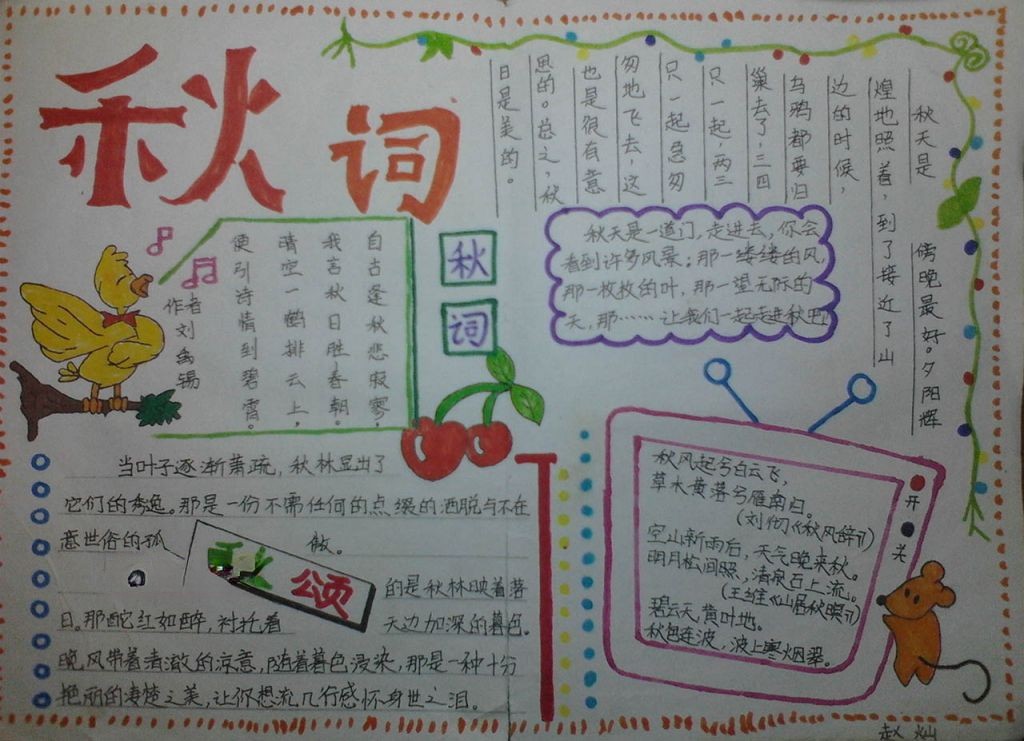 秋词
秋天是 傍晚最好。夕阳辉
煌地照着,到了接近了山
边的时候,
乌鸦都要归
巢去了,三四
只一起,两三
只一起急匆
匆地飞去,这
也是很有意
思的。总之,秋
日是美的。
自古逢秋悲寂寥,
我言秋日胜春朝。
晴空一鹤排云上,
便引诗情到碧霄。
作者刘禹锡
秋
词
秋天是一道门,走进去,你会
看到许多风景:那一缕缕的风,
那一枚枚的叶,那一望无际的
天,那……让我们一起走进秋吧
当叶子逐渐萧疏,秋林显出了
它们的秀逸。那是一份不需任何的点缀的洒脱与不在
意世俗的孤 傲。
颂
的是秋林映着落
日。那酡红如醉,衬托着 天边加深的暮色。
晚风带着清澈的凉意,随着暮色浸染,那是一种十分
艳丽的凄楚之美,让你想流几行感怀身世之泪。
秋风起兮白云飞,
草木黄落兮雁南归。
(刘彻《秋风辞》)
空山新雨后,天气晚来秋。
明月松间照,清泉石上流。
(王维《山居秋暝》)
碧云天,黄叶地。
秋色连波,波上寒烟翠。
开
关
赵灿